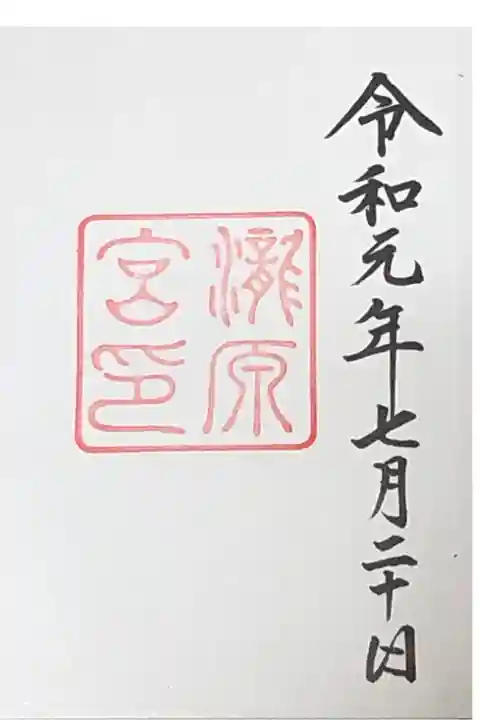 令和元年七月二十日
瀧原
宮印